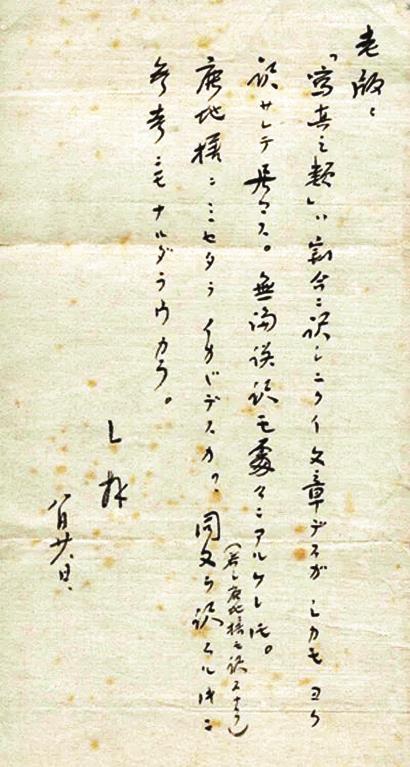 老版:
「寫真之類」ハ割合ニ訳シニクイ文章デスガシカモヨク
訳サレテ居マス。無論誤訳モ處々ニアルケレドモ。
鹿地様ニミセタライカガデスカ?(若シ鹿地様モ訳スナラ)同文ヲ訳スル時ニ
参考ニモナルダラウカラ。
L 拜
八月廿八日